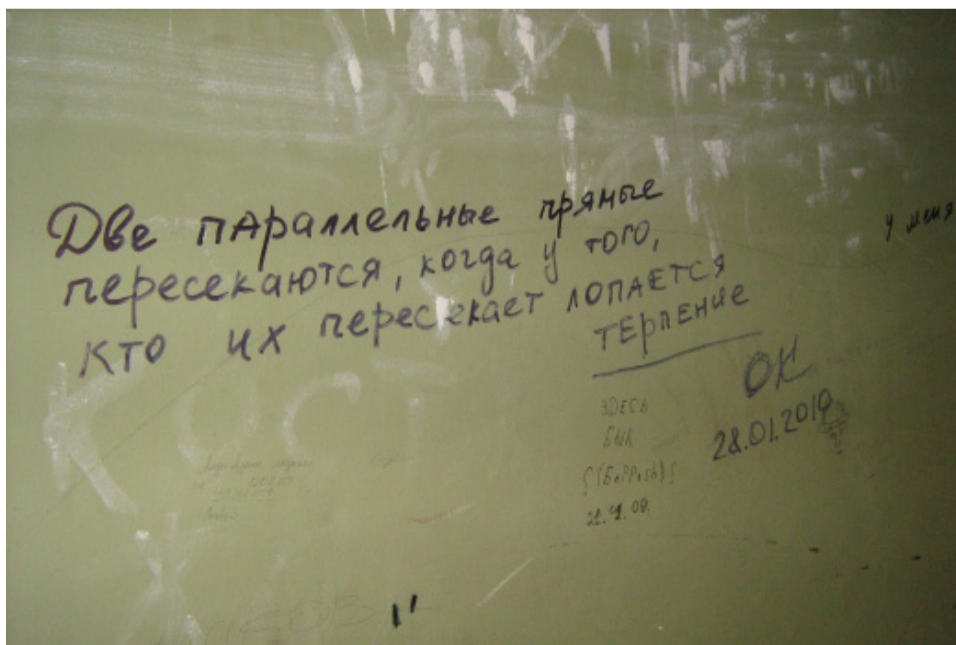 Две параллельные прямые
пересекаются, когда у того,
кто их пересекает лопается
терпение
у меня
ОК
28.01.2010
ЗДЕСЬ
БЫЛ
КОСТ